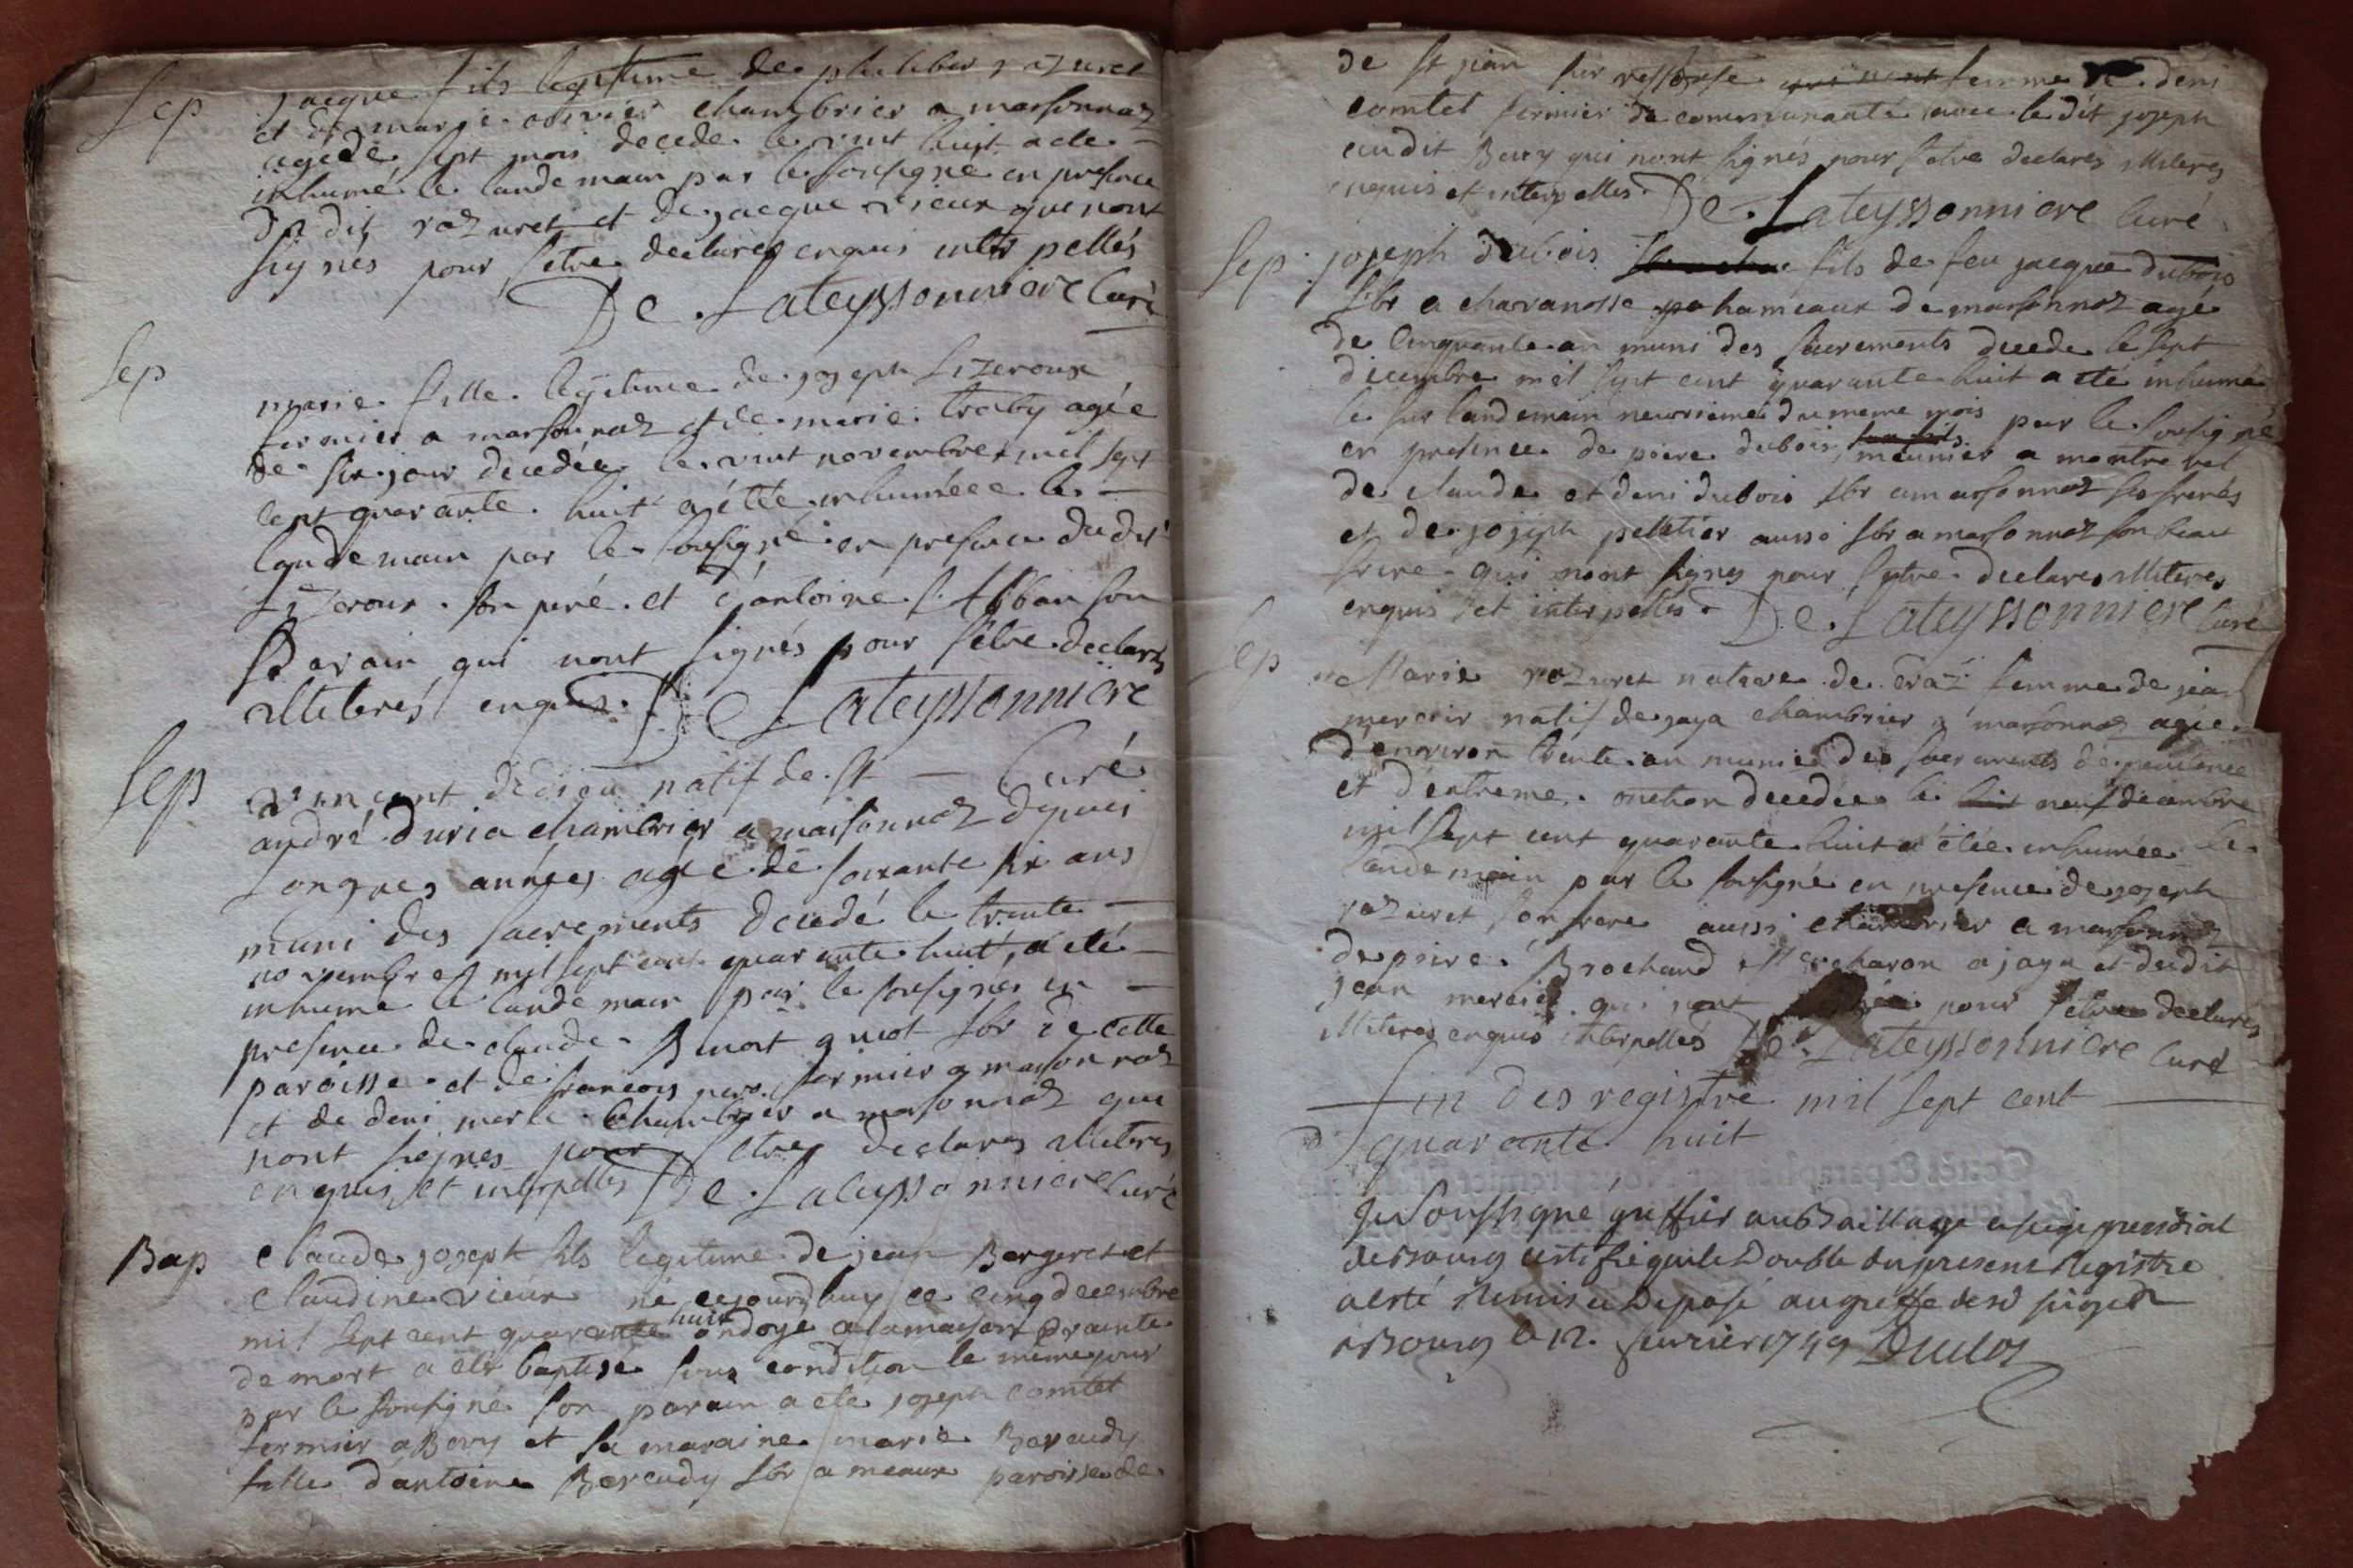 Sep
jacque fils legitime de philiber razuret
et de marie olivier chambrier a marsonnaz
agé de sept mois decede le vint huit a ete
inhumé le lande main par le sousigné en presence
du dit razuret et de jacque vieux que nont
signés pour setre declares enquis inter pellés
De Lateyssonniere Curé
Sep
marie fille legitime de joseph Lizeroux
fermier a marsonnaz et de marie traby agée
de six jour decedée le vint novembre mil sept
cent quarante huit a été inhuméee le
lande main par le sousigné en presence du dit
Lizeroux son peré et d'antoine son
Parain qui nont signés pour setre declarés
illiterés enquis De Lateyssonniere
Curé
Sep
vincent dedieu natif de st
andré duria chambrier a marsonnaz depuis
Longues années agé de soixante six ans
muni des sacrements decedé le trente
novembre mil sept cent quarante huit a eté
inhumé le lande main par le sousignés en
presence de claude Buat guiot lbr de cette
paroisse et de francois fermier a marsonnaz
et de deni merle chambrier a marsonnaz qui
nont signes pour setres declares illiteres
enquis et interpelles De Lateyssonniere Curé
Bap
claude joseph fils legitime de jean Bergeret et
claudine vieux né cejourdhuy ce cinq decembre
mil sept cent quarante huit ondoyé a la maison crainte
de mort a eté baptisé sous condition le même jour
par le sousigné son parain a ete joseph comtet
fermier a Bevy et sa maraine marie Bereudy
fille d'antoine Bereudy lbr a meaux paroisse de
de st jean sur ressouse femme de deni
comtet fermier de communauté avec le dit joseph
audit Bevy qui nont signés pour setre declares illiteres
enquis et interpelles De Lateyssonniere Curé
Sep
joseph dubois fils de feu jacque dubois
lbr a chavanosse hameaux de marsonnaz agé
de cinquante an muni des sacrements decede le sept
decembre mil sept cent quarante huit a eté inhumé
le sur landemain neuvieme du meme mois par le sousigné
en presence de piere dubois meunier a montrevel
de claude et deni dubois lbr a marsonnaz ses freres
et de joseph pelletier aussi lbr a marsonnaz son beau
frere qui nont signes pour setre declares illiteres
enquis et interpelles De Lateyssonniere Curé
Sep
Marie razuret native de craz femme de jean
mercier natif de jaya chambrier a marsonnaz agée
d'environ trente an munie des sacrements de penitence
et d'extreme onction decedee le neuf decembre
mil sept cent quarante huit a étée inhumee le
lande main par le sousigné en presence de joseph
razuret son frere aussi chambrier a marsonnaz
de piere Brochand charon a jaya et dudit
jean mercier qui nont pour setre declares
illiteres enquis interpellés De Lateyssonniere Curé
fin des registre mil sept cent
quarante huit
Je Soussigné greffier au Bailliage et siege presidial
de Bourg certifie que le Double du present Registre
a esté Remis et Deposé au greffe desd sieges
a Bourg le 12. fevrier 1749 Duclos